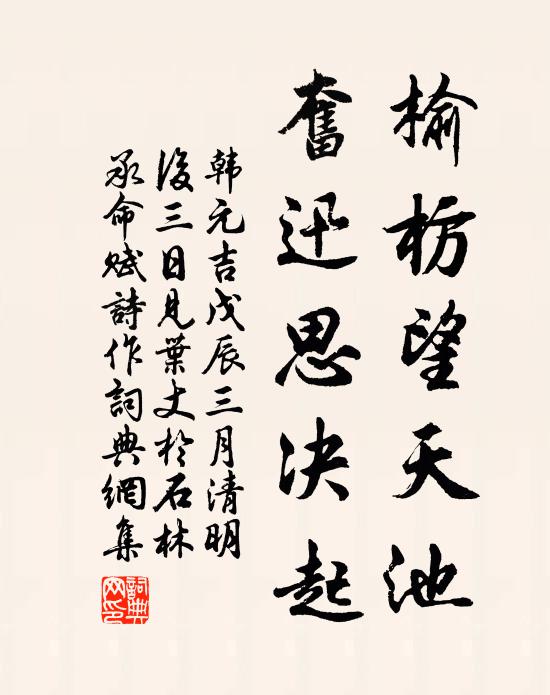 榆枋望天池
奮迅思决起
韩元吉戊辰三月清明
後三日見葉丈於石林
承命赋詩作詞典網集
詞典网印